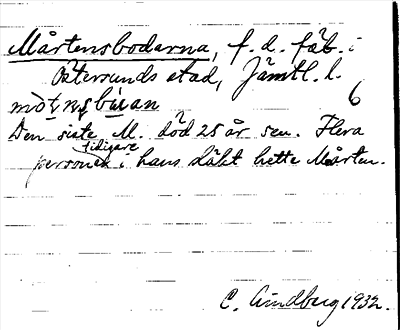 Mårtensbodarna, f. d. fäb. i
Östersunds stad, Jämtl. l.
6
Den siste M. dog 25 år sen. Flera
tidigare
personer i hans släkt hette Mårten.
C. Lindberg 1932.